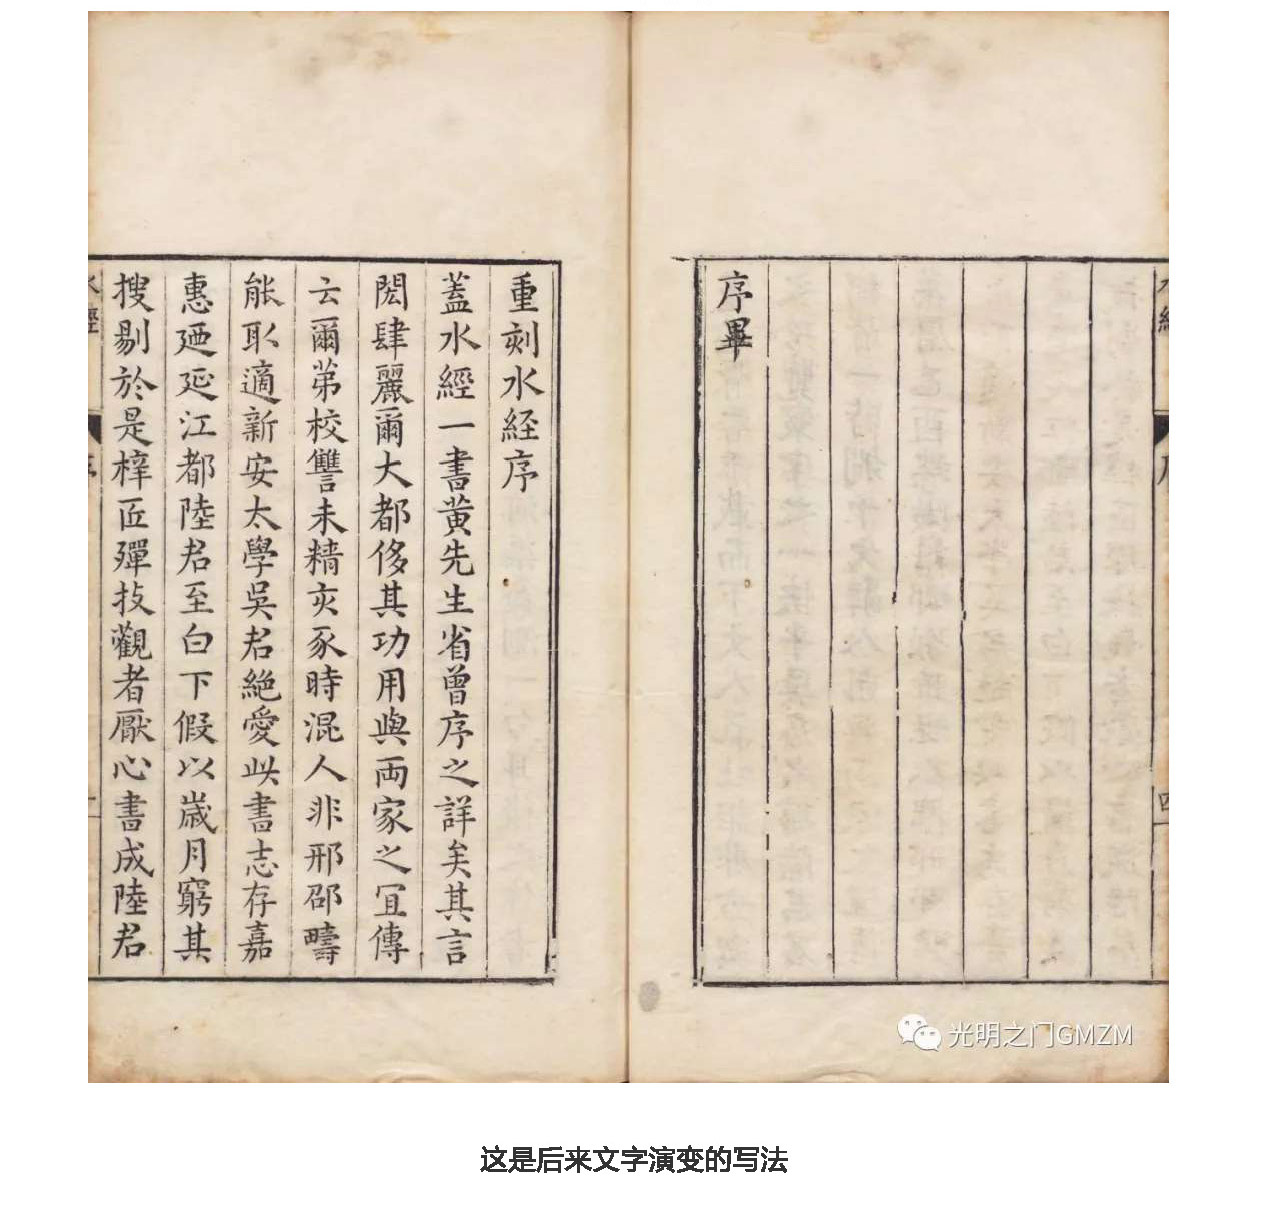 序畢
重刻水経序
蓋水經一書黄先生省曾序之詳矣其言
閎肆麗爾大都侈其功用與兩家之冝傳
云爾苐校讐未精亥豕時混人非邢邵疇
能㪅適新安太學吳君絶愛此書志存嘉
惠廼延江都陸君至白下假以歳月窮其
搜剔於是梓匠殫技觀者厭心書成陸君
光明之门GMZM
这是后来文字演变的写法